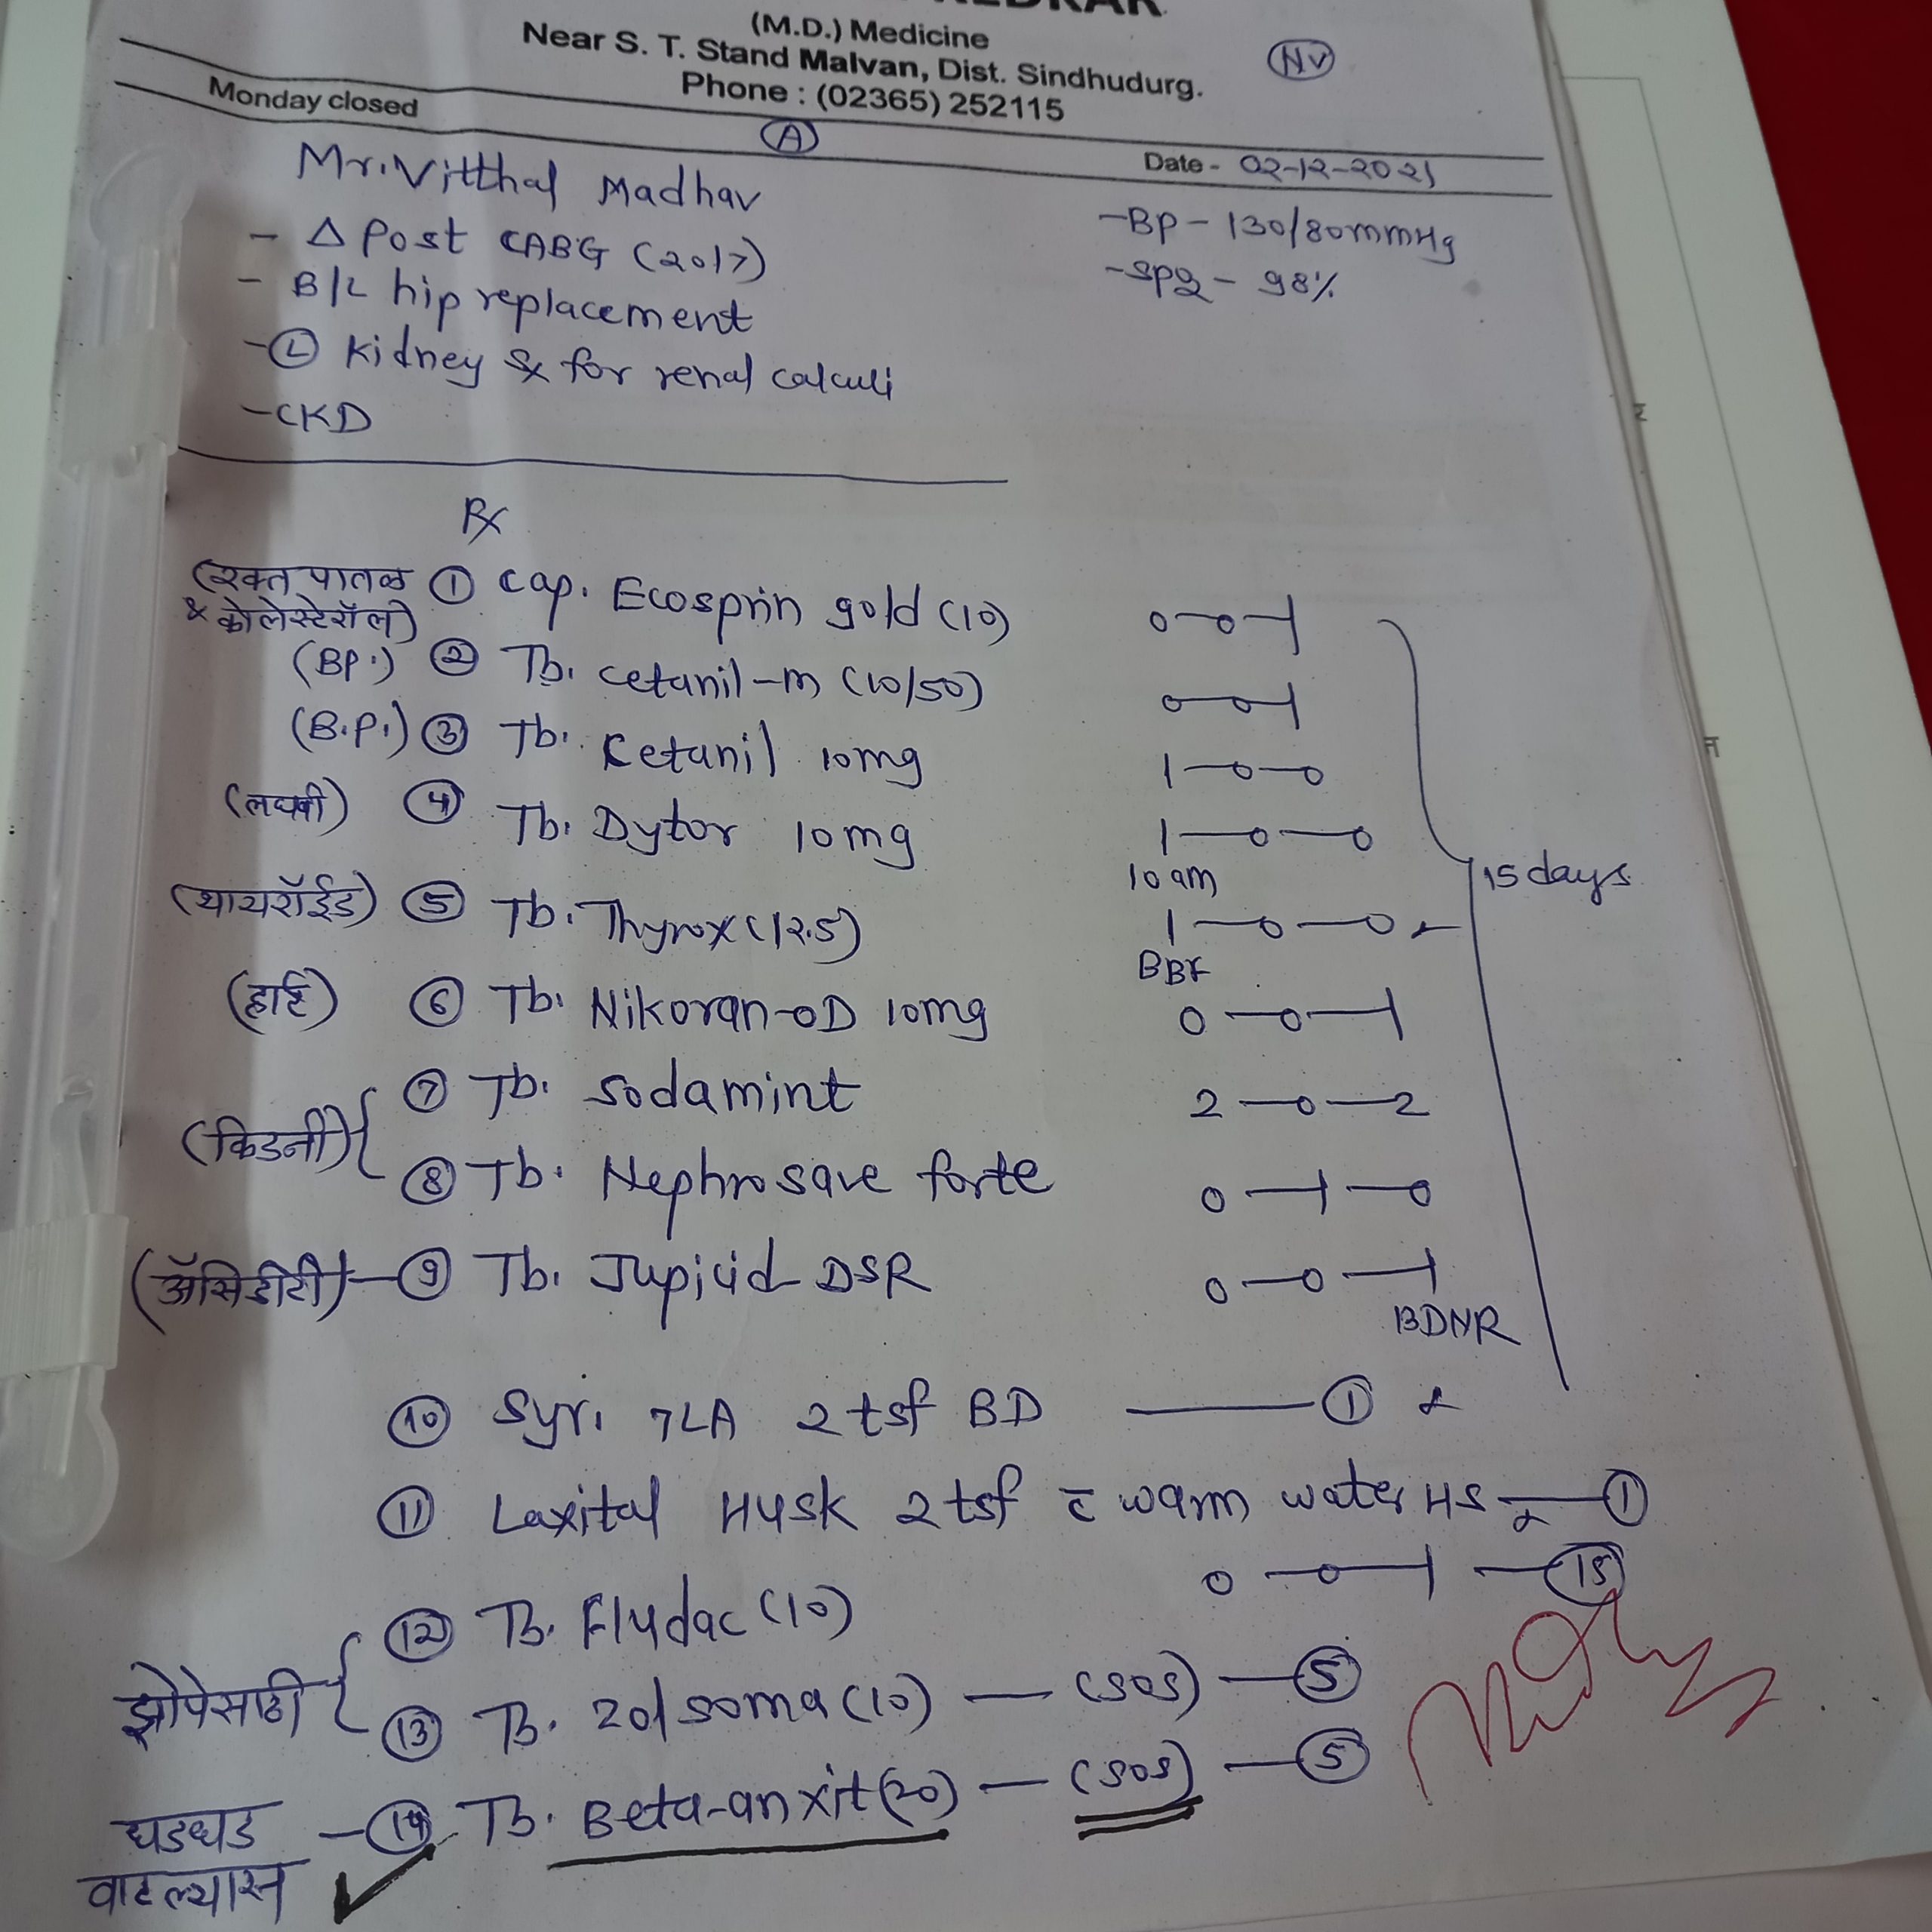 (M.D.) Medicine
NV
Near S. T. Stand Malvan, Dist. Sindhudurg.
Phone : (02365) 252115
Monday closed
A
Date - 02-12-2021
Mr. Vitthal Madhav
- Δ Post CABG (2017)
- BP - 130/80mmHg
- B/L hip replacement
- SPO2 - 98%
- L Kidney Sx for renal calculi
- CKD
Rx
(रक्त पातळ & कोलेस्टेरॉल) 1 Cap. Ecosprin gold (10) 0-0-1
(BP.) 2 Tb. Cetanil-m (10/50) 0-0-1
(B.P.) 3 Tb. Cetanil 10mg 1-0-0
(लघवी) 4 Tb. Dytor 10mg 1-0-0
10 am
15 days
(थायरॉईड) 5 Tb. Thyrox (12.5) 1-0-0
BBF
(हार्ट) 6 Tb. Nikoran-OD 10mg 0-0-1
7 Tb. Sodamint 2-0-2
(किडनी)
8 Tb. Nephrosave forte 0-1-0
(ॲसिडीटी) - 9 Tb. Jupicid-DSR 0-0-1
BDNR
10 Syr. 7LA 2 tsf BD - 1
11 Laxital Husk 2 tsf c̄ warm water HS - 1
12 Tb. Fludac (10) 0-0-1 - 15
झोपेसाठी
13 Tb. Zolsoma (10) - (SOS) - 5
धडधड वाटल्यास - 14 Tb. Beta-anxit (20) - (SOS) - 5